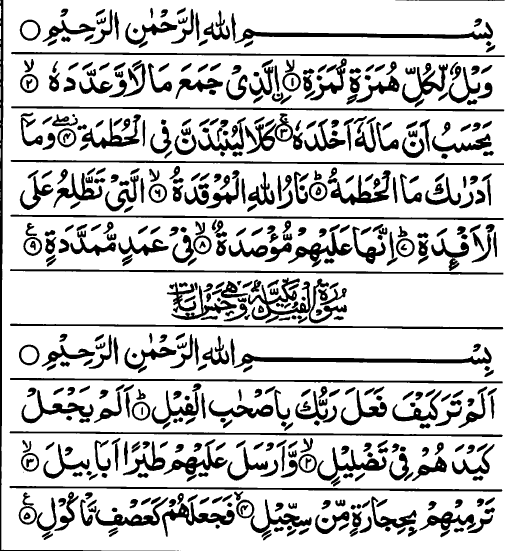 بِسْمِ اللهِ الرَّحْمٰنِ الرَّحِيْمِ ○
وَيْلٌ لِّكُلِّ هُمَزَةٍ لُّمَزَةٍ ۙ﴿۱﴾ اِۨلَّذِیْ جَمَعَ مَالًا وَّعَدَّدَهٗ ۙ﴿۲﴾
يَحْسَبُ اَنَّ مَالَهٗۤ اَخْلَدَهٗ ۚ﴿۳﴾ كَلَّا لَيُنْۢبَذَنَّ فِی الْحُطَمَةِ ۖ﴿۴﴾ وَمَاۤ
اَدْرٰىكَ مَا الْحُطَمَةُ ؕ﴿۵﴾ نَارُ اللهِ الْمُوْقَدَةُ ۙ﴿۶﴾ الَّتِیْ تَطَّلِعُ عَلَی
الْاَفْـِٕدَةِ ؕ﴿۷﴾ اِنَّهَا عَلَيْهِمْ مُّؤْصَدَةٌ ۙ﴿۸﴾ فِیْ عَمَدٍ مُّمَدَّدَةٍ ﴿۹﴾ع
سُوْرَةُ الْفِيْلِ مَكِّيَّةٌ وَّهِیَ خَمْسُ اٰيَاتٍ
بِسْمِ اللهِ الرَّحْمٰنِ الرَّحِيْمِ ○
اَلَمْ تَرَ كَيْفَ فَعَلَ رَبُّكَ بِاَصْحٰبِ الْفِيْلِ ؕ﴿۱﴾ اَلَمْ يَجْعَلْ
كَيْدَهُمْ فِیْ تَضْلِيْلٍ ۙ﴿۲﴾ وَّاَرْسَلَ عَلَيْهِمْ طَيْرًا اَبَابِيْلَ ۙ﴿۳﴾
تَرْمِيْهِمْ بِحِجَارَةٍ مِّنْ سِجِّيْلٍ ۙ﴿۴﴾ فَجَعَلَهُمْ كَعَصْفٍ مَّاْكُوْلٍ ﴿۵﴾ع